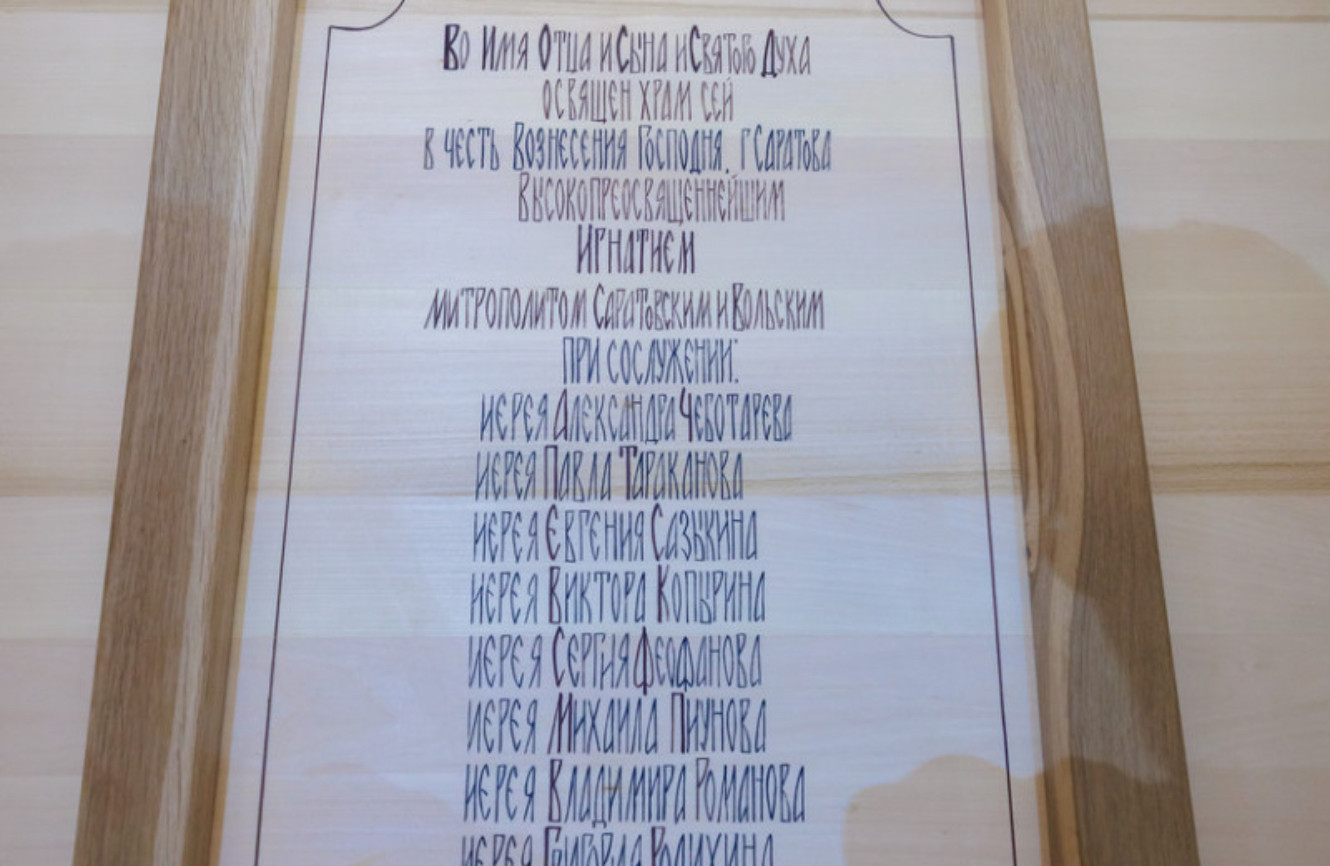 Во Имя Отца и Сына и Святого Духа
освящен храм сей
в честь Вознесения Господня. г Саратова
Высокопреосвященнейшим
Игнатием
митрополитом Саратовским и Вольским
при сослужении:
иерея Александра Чеботарева
иерея Павла Тараканова
иерея Євгения Сазыкина
иерея Виктора Копырина
иерея Сергия Феофанова
иерея Михаила Пиунова
иерея Владимира Романова
иерея Григория Родихина